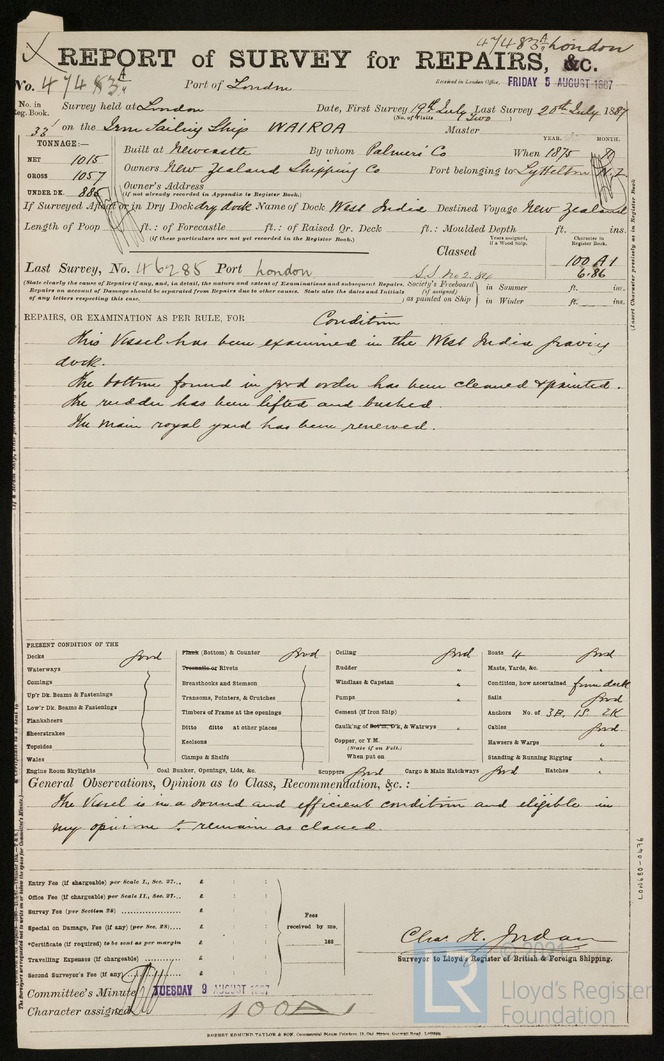 47483 A/4 London
REPORT of SURVEY for REPAIRS, &c.
No. 47483 A/4 Port of London Received in London Office, FRIDAY 5 AUGUST 1887
No. in Reg. Book. Survey held at London Date, First Survey 19th July Last Survey 20th July 1887
(No. of Visits Two )
33 on the Iron Sailing Ship WAIROA Master
TONNAGE:— YEAR. MONTH.
NET 1015 Built at Newcastle By whom Palmers' Co When 1875 8
GROSS 1057 Owners New Zealand Shipping Co Port belonging to Lyttelton N.Z
UNDER DK. 886 Owner's Address
(if not already recorded in Appendix to Register Book.)
If Surveyed Afloat or in Dry Dock dry dock Name of Dock West India Destined Voyage New Zealand
Length of Poop ft.: of Forecastle ft.: of Raised Qr. Deck ft.: Moulded Depth ft. ins.
(if these particulars are not yet recorded in the Register Book.) Years assigned, if a Wood Ship. Character in Register Book.
Classed 100 A1
6.86
Last Survey, No. 46285 Port London S.S. No 2. 84
(State clearly the cause of Repairs if any, and, in detail, the nature and extent of Examinations and subsequent Repairs. Society's Freeboard in Summer ft. ins.
Repairs on account of Damage should be separated from Repairs due to other causes. State also the dates and Initials (if assigned)
of any letters respecting this case.) as painted on Ship in Winter ft. ins.
(Insert Character precisely as in Register Book
REPAIRS, OR EXAMINATION AS PER RULE, FOR Condition
This Vessel has been examined in the West India graving
dock.
The bottom found in good order has been cleaned & painted.
The rudder has been lifted and bushed.
The main royal yard has been renewed.
PRESENT CONDITION OF THE
Decks good Plank (Bottom) & Counter good Ceiling good Boats 4 good
Waterways Treenails or Rivets Rudder " Masts, Yards, &c. "
Comings Breasthooks and Stemson Windlass & Capstan " Condition, how ascertained from deck
Up'r Dk. Beams & Fastenings Transoms, Pointers, & Crutches Pumps " Sails good
Low'r Dk. Beams & Fastenings Timbers of Frame at the openings Cement (if Iron Ship) " Anchors No. of 3B. 1S. 2K
Planksheers Ditto ditto at other places Caulk'ng of Bot'm, D'k, & Watrwys " Cables good
Sheerstrakes Keelsons Copper, or Y.M. Hawsers & Warps "
Topsides Clamps & Shelfs (State if on Felt.)
Wales When put on Standing & Running Rigging "
Engine Room Skylights Coal Bunker, Openings, Lids, &c. Scuppers good Cargo & Main Hatchways good Hatches "
General Observations, Opinion as to Class, Recommendation, &c.:
The Vessel is in a sound and efficient condition and eligible in
my opinion to remain as classed.
Entry Fee (if chargeable) per Scale I., Sec. 27... £ : :
Office Fee (if chargeable) per Scale II., Sec. 27... £ : :
Survey Fee (per Section 28) £ : :
Special or Damage, Fee (if any) (per Sec. 28) £ : :
*Certificate (if required) to be sent as per margin £ : :
Travelling Expenses (if chargeable) £ : :
Second Surveyor's Fee (if any) £ : :
Fees
received by me,
188
Chas. H. Jordan
Surveyor to Lloyd's Register of British & Foreign Shipping.
Committee's Minute TUESDAY 9 AUGUST 1887
Character assigned 100A1
ROBERT EDMUND TAYLOR & SON, Commercial Steam Printers, 19, Old Street, Goswell Road, London.
LON680-0476
© 2021
LR
Lloyd's Register
Foundation